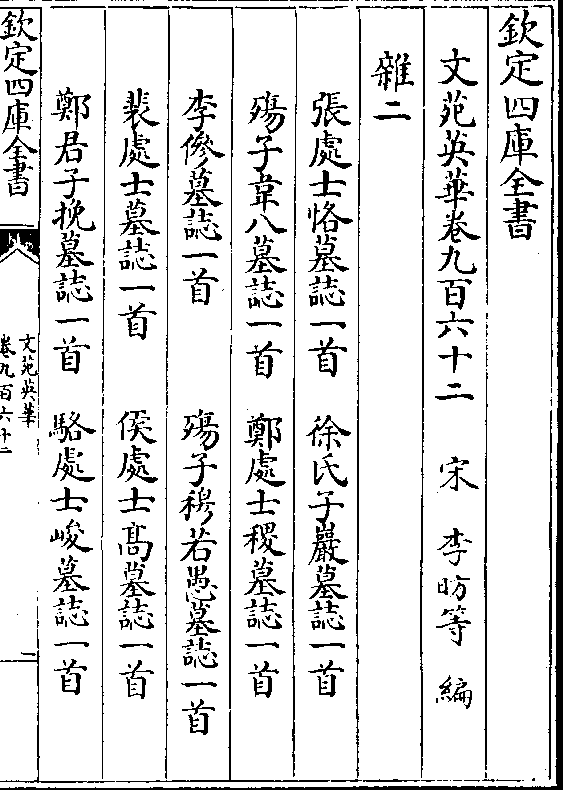 欽定四庫全書
文苑英華卷九百六十二 宋 李昉等 編
雜二
張處士恪墓誌一首 徐氏子巖墓誌一首
殤子韋八墓誌一首 鄭處士稷墓誌一首
李傪墓誌一首 殤子穆若愚墓誌一首
裴處士墓誌一首 侯處士高墓誌一首
鄭君子挽墓誌一首 駱處士峻墓誌一首
欽定四庫全書
文苑英華
卷九百六十二
一